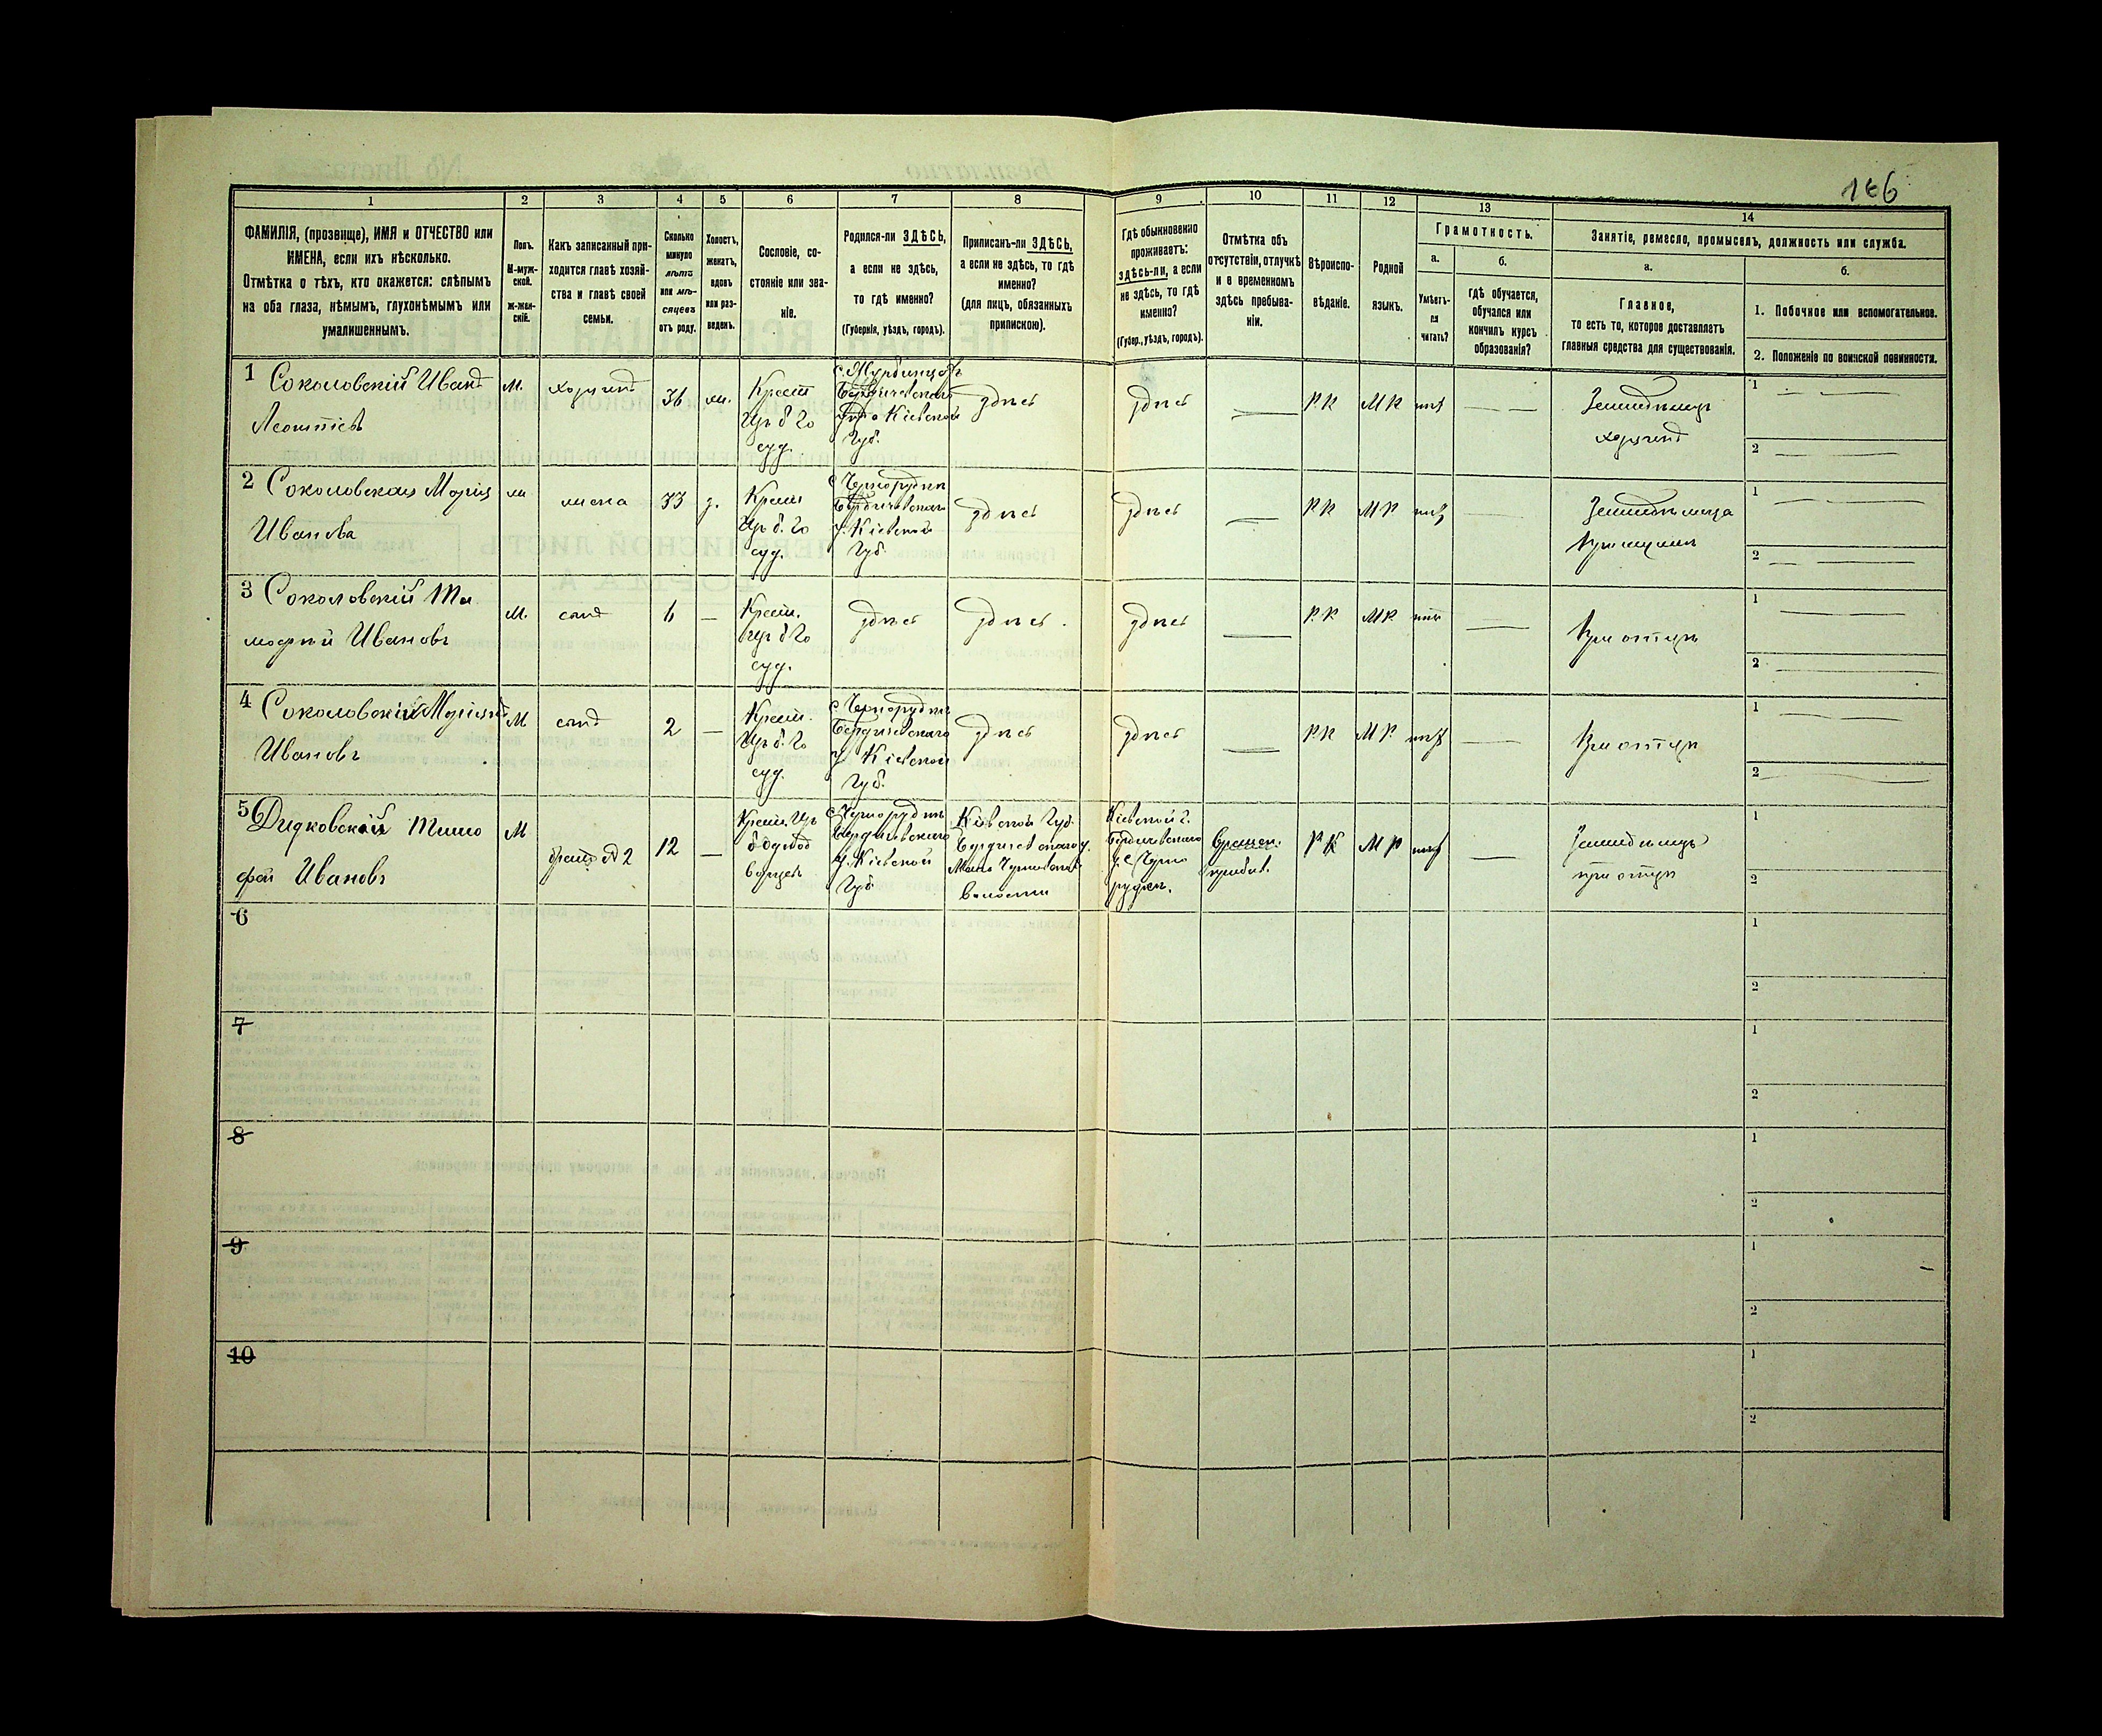 166
1
2
3
4
5
6
7
8
9
10
11
12
13
14
ФАМИЛІЯ, (прозвище), ИМЯ и ОТЧЕСТВО или
ИМЕНА, если ихъ нѣсколько.
Отмѣтка о тѣхъ, кто окажется: слѣпымъ
на оба глаза, нѣмымъ, глухонѣмымъ или
умалишеннымъ.
Полъ.
М-муж-
ской.
Ж-жен-
скій.
Какъ записанный при-
ходится главѣ хозяй-
ства и главѣ своей
семьи.
Сколько
минуло
лѣтъ
или мѣ-
сяцевъ
отъ роду.
Холостъ,
женатъ,
вдовъ
или раз-
веденъ.
Сословіе, со-
стояніе или зва-
ніе.
Родился-ли ЗДѢСЬ,
а если не здѣсь,
то гдѣ именно?
(Губернія, уѣздъ, городъ).
Приписанъ-ли ЗДѢСЬ,
а если не здѣсь, то гдѣ
именно?
(для лицъ, обязанныхъ
припискою).
Гдѣ обыкновенно
проживаетъ:
здѣсь-ли, а если
не здѣсь, то гдѣ
именно?
(Губер., уѣздъ, городъ).
Отмѣтка объ
отсутствіи, отлучкѣ
и о временномъ
здѣсь пребыва-
ніи.
Вѣроиспо-
вѣданіе.
Родной
языкъ.
Грамотность.
а.
Умѣетъ-
ли
читать?
б.
гдѣ обучается,
обучался или
кончилъ курсъ
образованія?
Занятіе, ремесло, промыселъ, должность или служба.
а.
Главное,
то есть то, которое доставляетъ
главныя средства для существованія.
б.
1. Побочное или вспомогательное.
2. Положеніе по воинской повинности.
1 Соколовскій Иванъ
Леонтіевъ
М.
хозяинъ
36
ж.
Крест
Изъ б. го
суд.
Бердичевскаго
Кіевской
Губ.
здѣсь
здѣсь
РК
МР
нѣтъ
Земледѣлецъ
хозяинъ
1
2
2 Соколовская Марія
Иванова
ж
жена
33
з.
Крест
Изъ б. го
суд.
с. Чернорудки
Бердичевскаго
у. Кіевской
Губ.
здѣсь
здѣсь
РК
МР
нѣтъ
Земледѣлица
При мужѣ
1
2
3 Соколовскій Ти
мофей Ивановъ
М.
сынъ
6
—
Крест.
Изъ б. го
суд.
здѣсь
здѣсь.
здѣсь
РК
МР
нѣтъ
При отцѣ
1
2
4 Соколовскій
Ивановъ
М
сынъ
2
—
Крест.
Изъ б. го
суд.
с. Чернорудкѣ
Бердичевскаго
у. Кіевской
Губ.
здѣсь
здѣсь
РК
МР
нѣтъ
При отцѣ
1
2
5 Дидковскій Тимо
фей Ивановъ
М
братъ № 2
12
—
Крест. Изъ
с. Чернорудкѣ
Бердичевскаго
у. Кіевской
Губ
Кіевской Губ.
Бердичевскаго у.
волости
Кіевской г.
Бердичевскаго
у. с. Черно
рудки.
Времен.
пребыв.
РК
МР
нѣтъ
Земледѣлецъ
при отцѣ
1
2
6
1
2
7
1
2
8
1
2
9
1
2
10
1
2